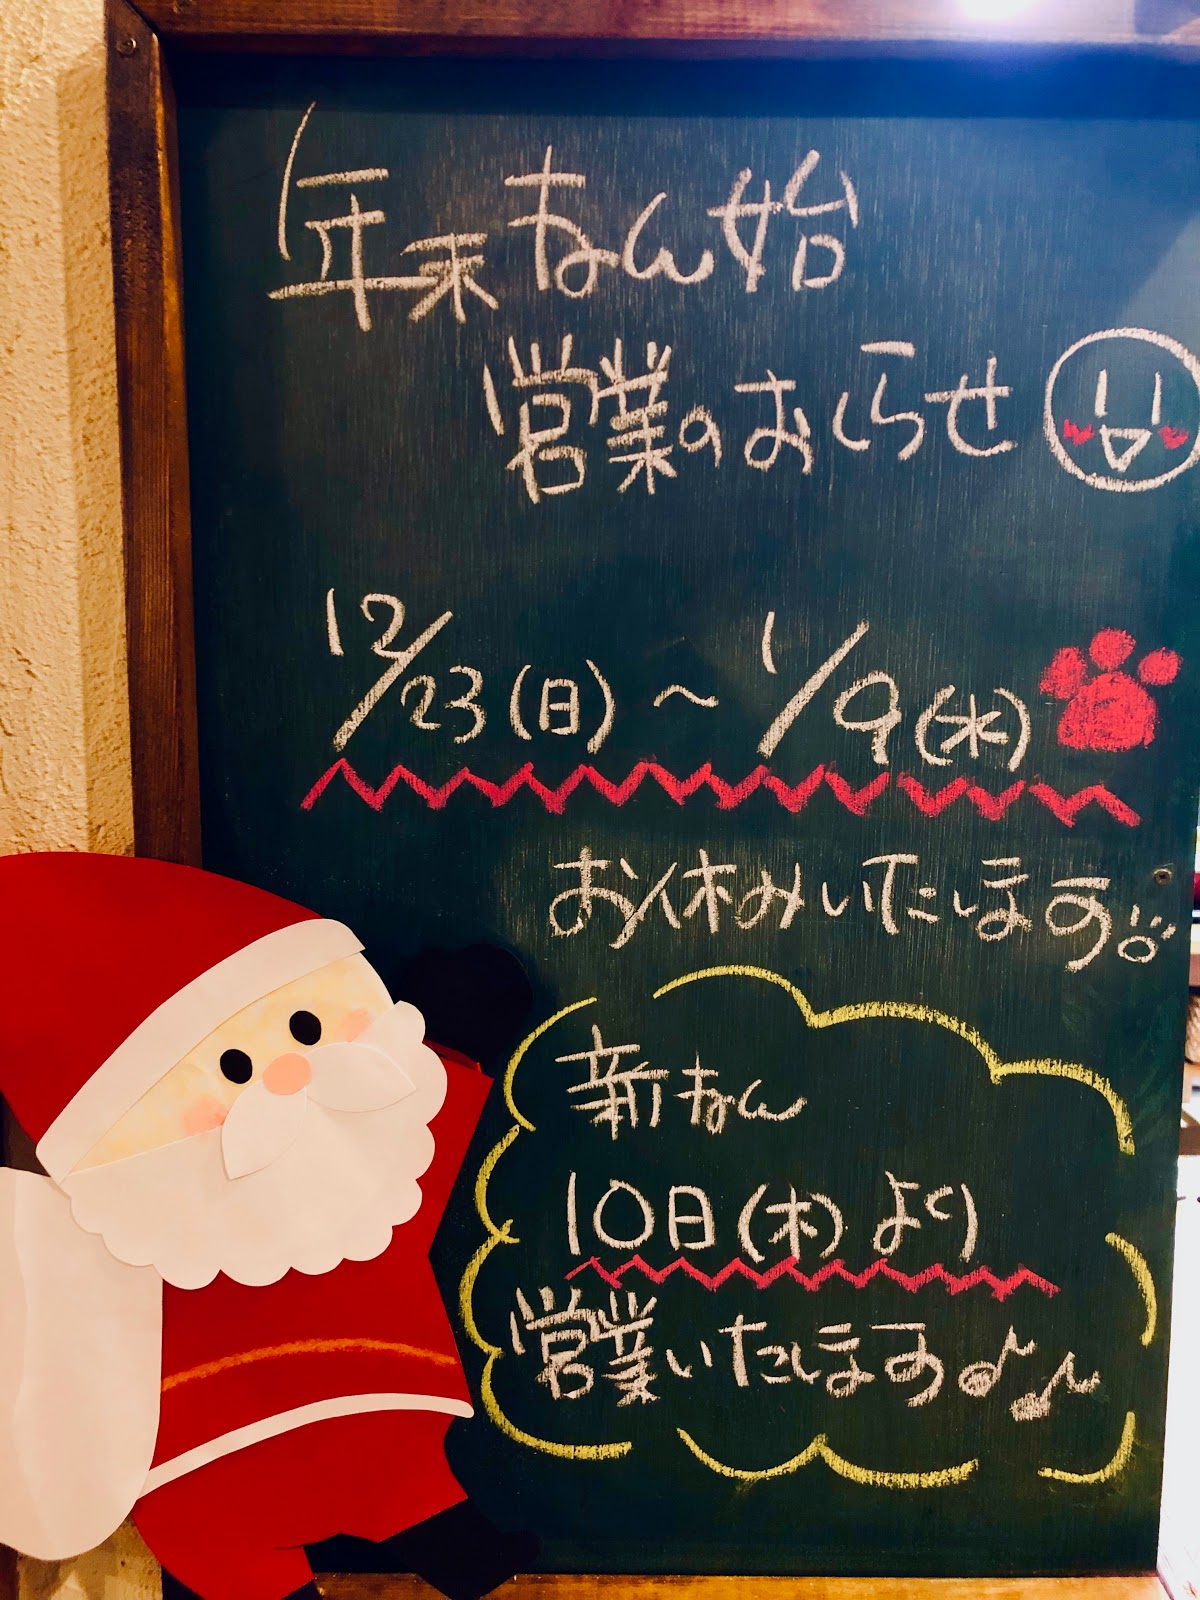 年末ねん始
営業のおしらせ
12/23(日)～1/9(水)
お休みいたします。
新ねん
10日(木)より
営業いたします